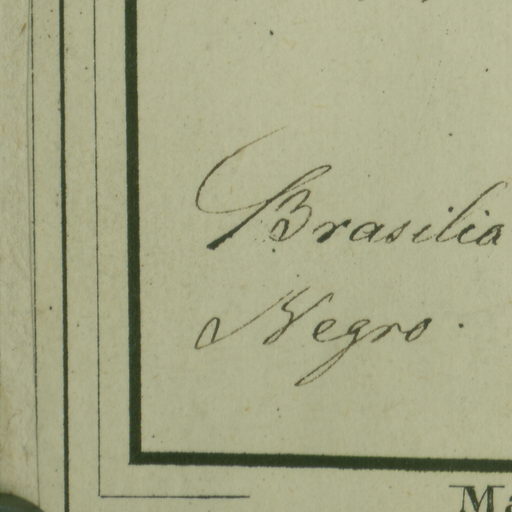 Brasilia
Negro.
Ma